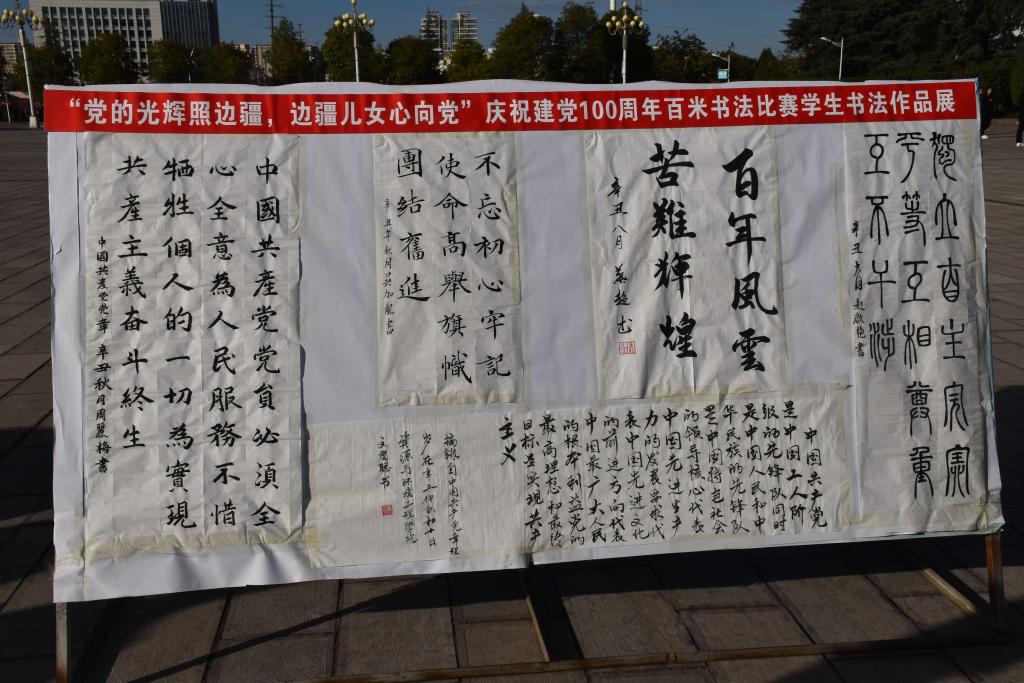 “党的光辉照边疆，边疆儿女心向党”庆祝建党100周年百米书法比赛学生书法作品展
中國共產黨党員必須全
心全意為人民服務不惜
牺牲個人的一切為實現
共產主義奋斗終生
中國共產党党章 辛丑秋月周麗梅書
不忘初心牢記
使命高舉旗幟
團結奮進
辛丑年秋月吴加書
百年風雲
苦難輝煌
辛丑八月
獨立自主完
平等互相尊重
互不干涉
辛丑 書
中国共产党
是中国工人阶
级的先锋队同时
是中国人民和中
华民族的先锋队
是中国特色社会
的领导核心代表
中国先进生产
力的发展要求代
表中国先进文化
的前进方向代表
中国最广大人民
的根本利益党的
最高理想和最终
目标是实现共产
主义
摘录自中国共产党章程
岁在辛丑仲秋初十日
资源与环境工程学院
文聪书